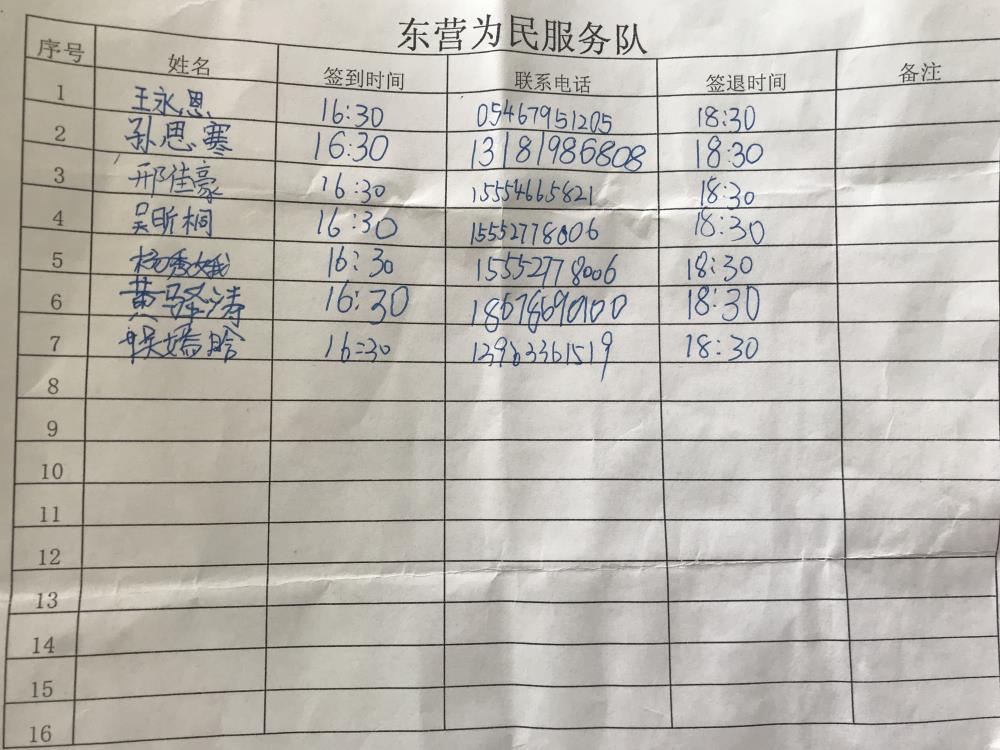 东营为民服务队
序号 姓名 签到时间 联系电话 签退时间 备注
1 王永恩 16:30 05467951205 18:30
2 孙思寒 16:30 13181986808 18:30
3 邢佳豪 16:30 15554665821 18:30
4 吴昕桐 16:30 15552778006 18:30
5 杨秀娥 16:30 15552778006 18:30
6 黄译涛 16:30 18678690100 18:30
7 16:30 18:30
8
9
10
11
12
13
14
15
16